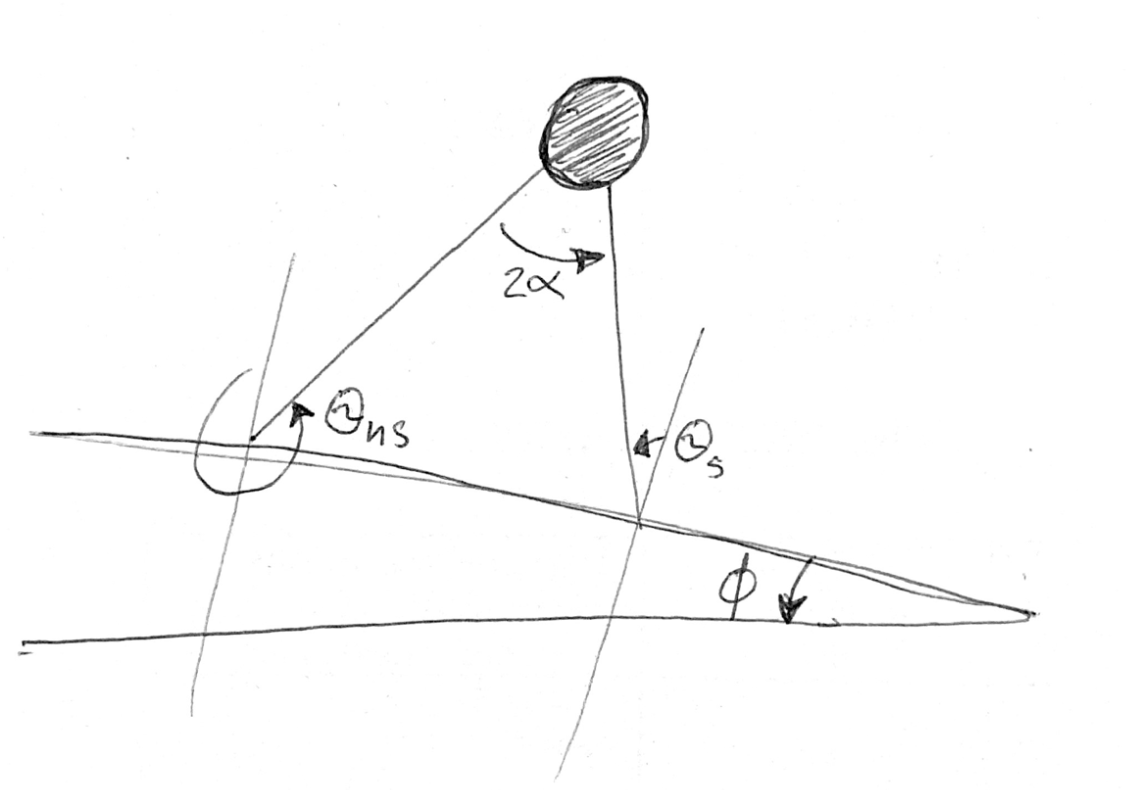 2α
Θns
Θs
ϕ